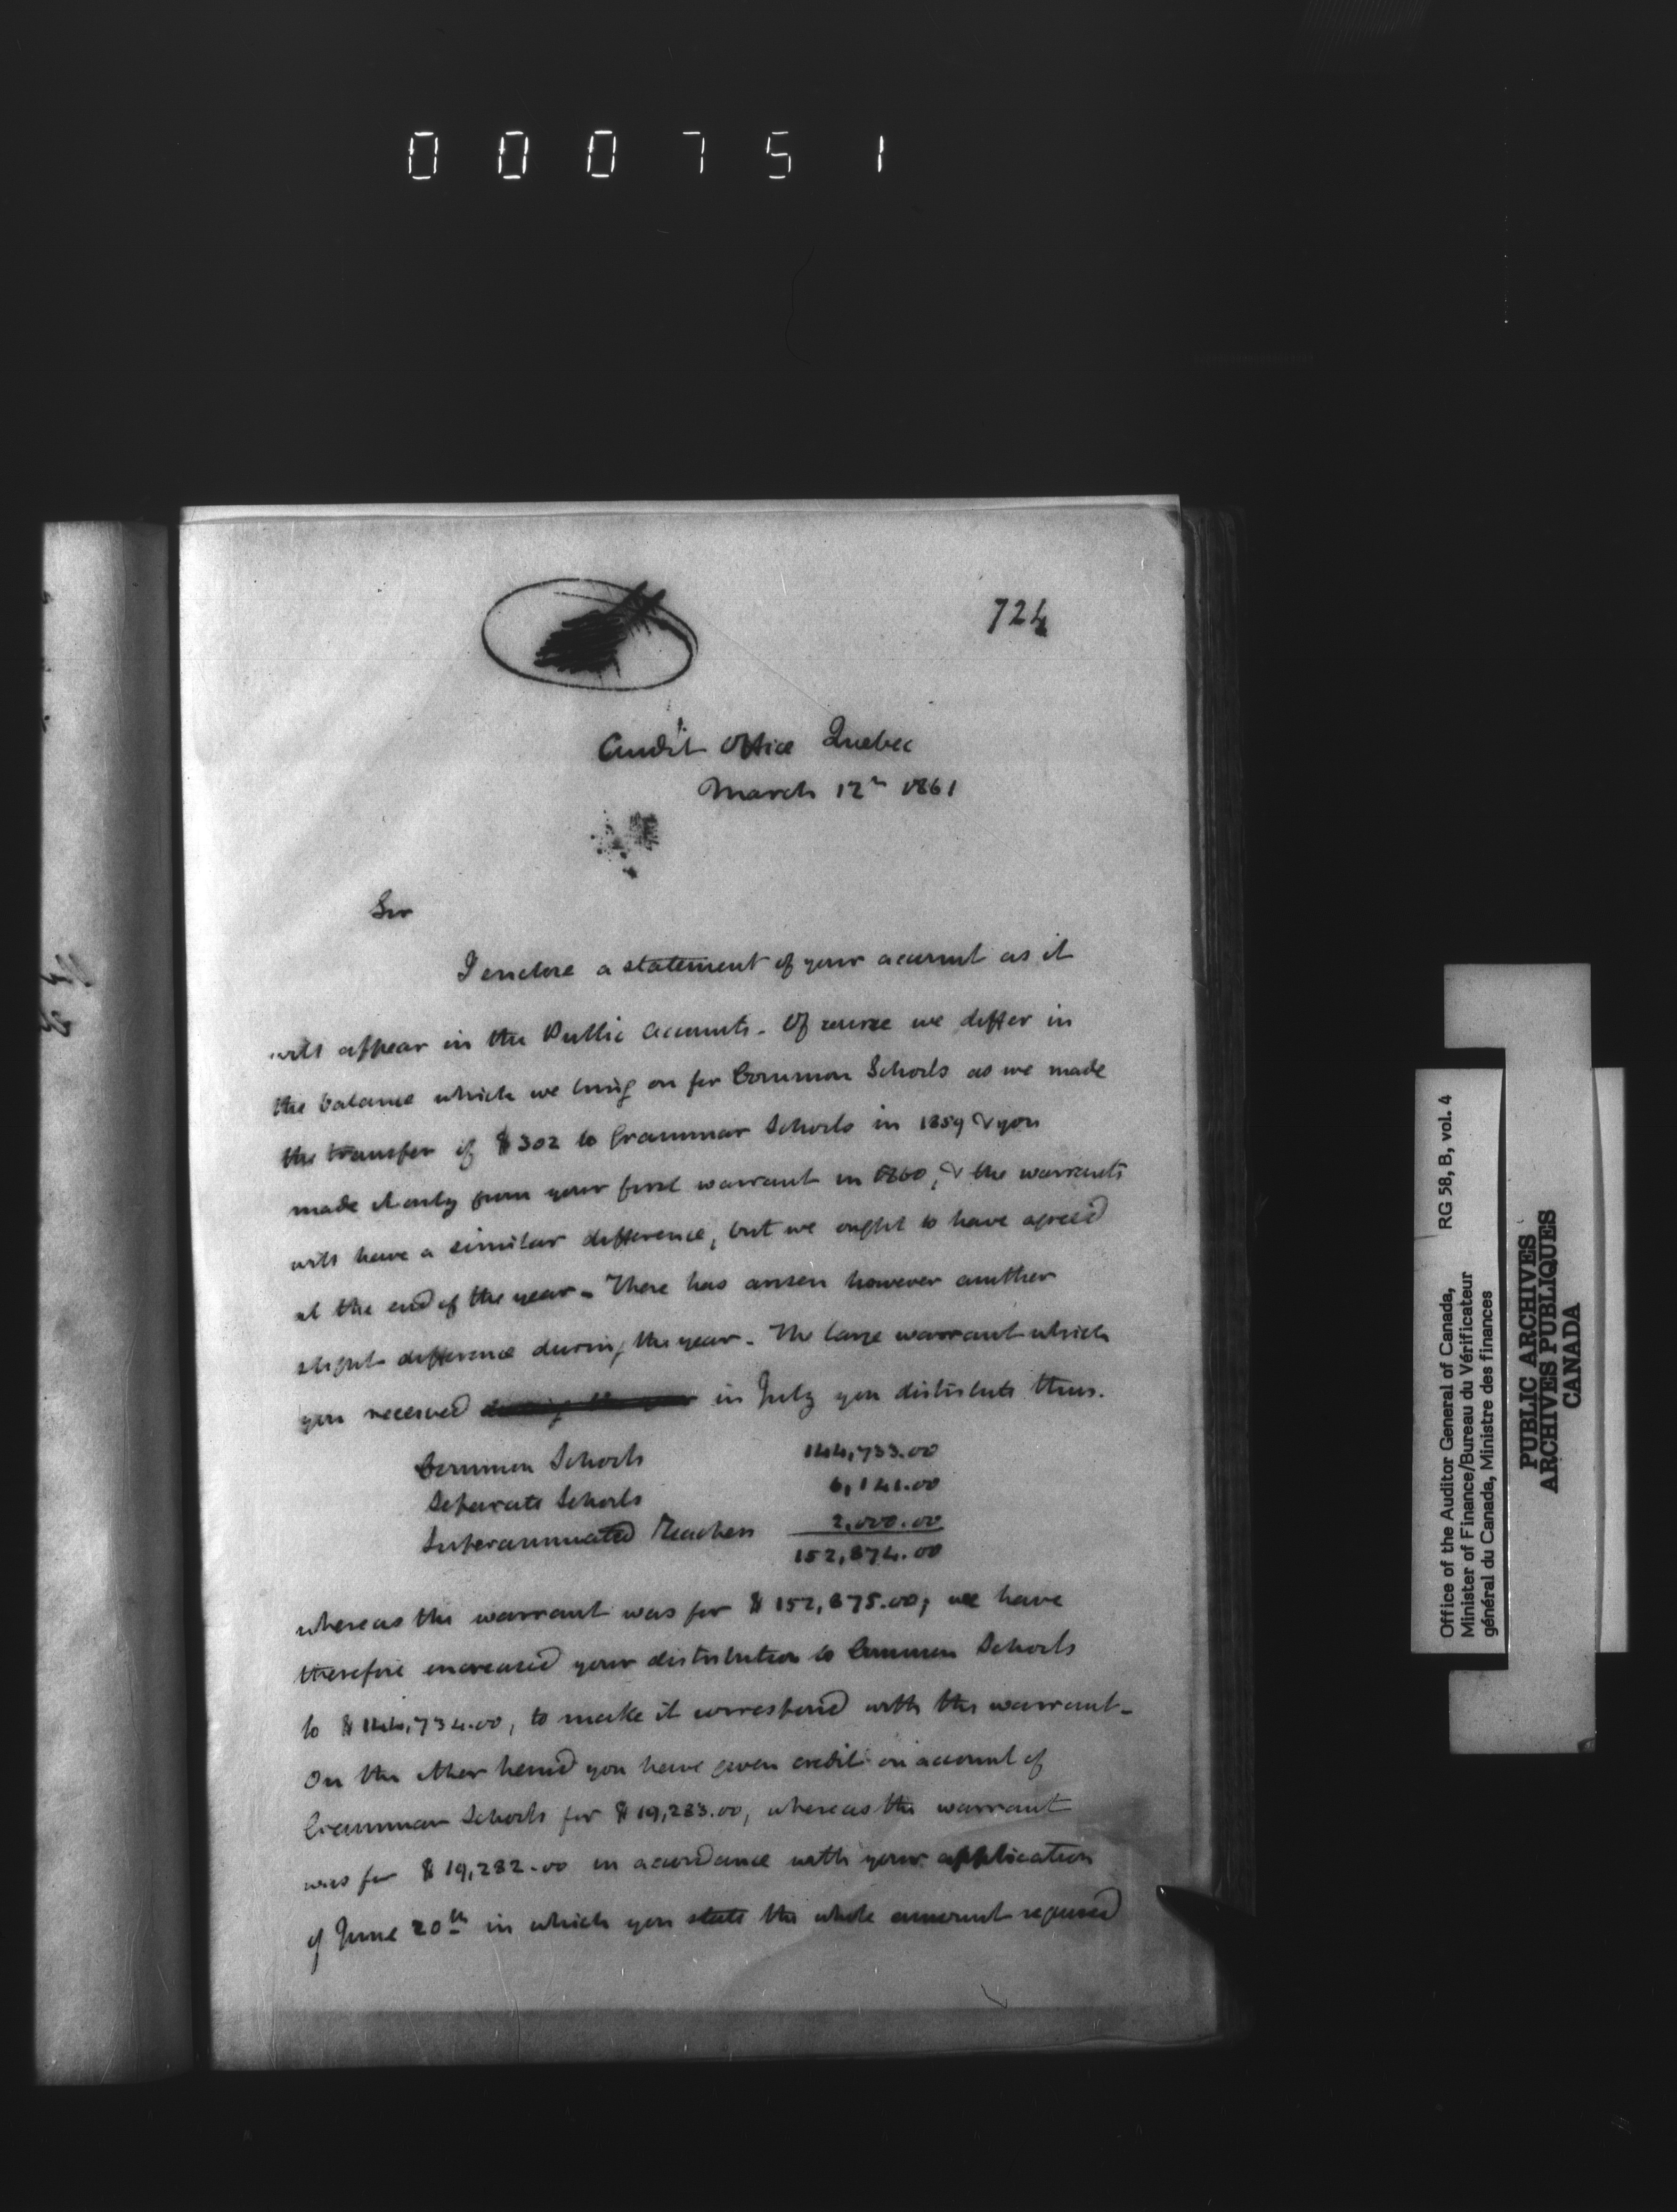 000751
724
Audit Office Quebec
March 12th 1861
Sir
I enclose a statement of your account as it
will appear in the Public Accounts. Of course we differ in
the balance which we bring on for Common Schools as we made
the transfer of $302 to Grammar Schools in 1859 & you
made it only from your first warrant in 1860, & the warrants
will have a similar difference, but we ought to have agreed
at the end of the year. There has arisen however another
slight difference during the year. The large warrant which
you received during the year in July you distribute thus.
Common Schools 144,733.00
Separate Schools 6,141.00
Superannuated Teachers 2,000.00
152,874.00
whereas the warrant was for $152,875.00; we have
therefore encreased your distribution to Common Schools
to $144,734.00, to make it correspond with the warrant.
On the other hand you have given credit on account of
Grammar Schools for $19,283.00, whereas the warrant
was for $19,282.00 in accordance with your application
of June 20th in which you state the whole amount required
Office of the Auditor General of Canada, RG 58, B, vol. 4
Minister of Finance/Bureau du Vérificateur
général du Canada, Ministre des finances
PUBLIC ARCHIVES
ARCHIVES PUBLIQUES
CANADA